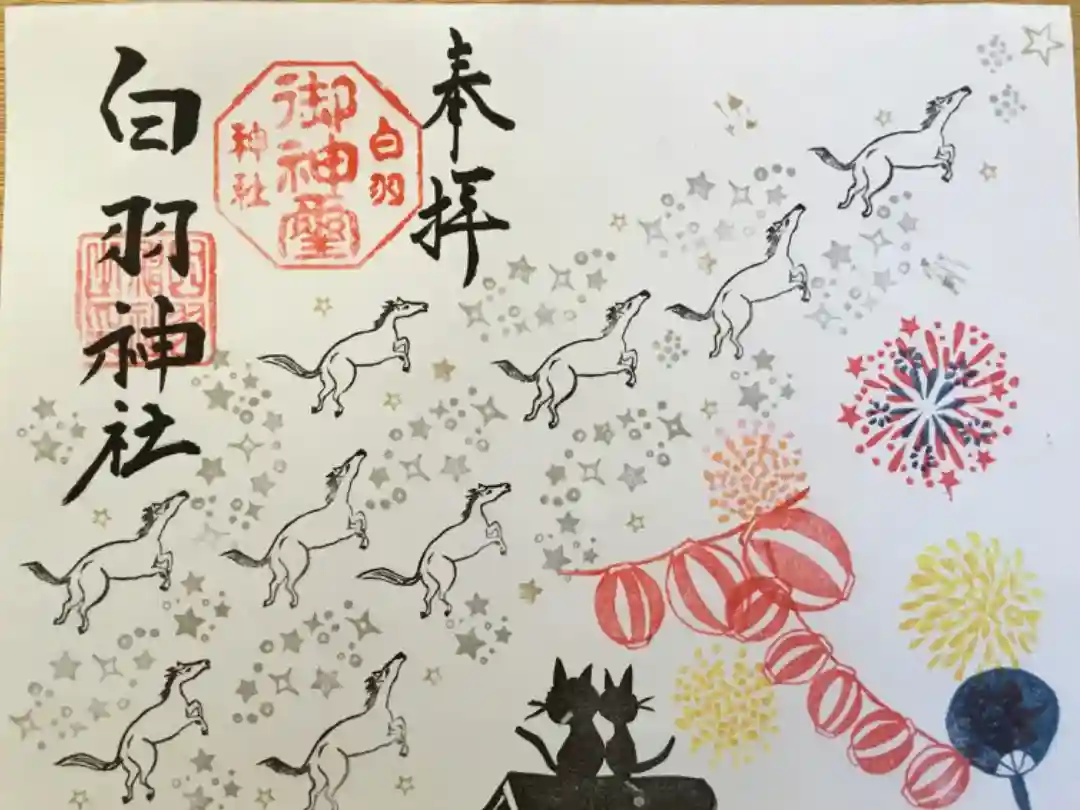 奉拝
白羽
御神璽
神社
白羽神社